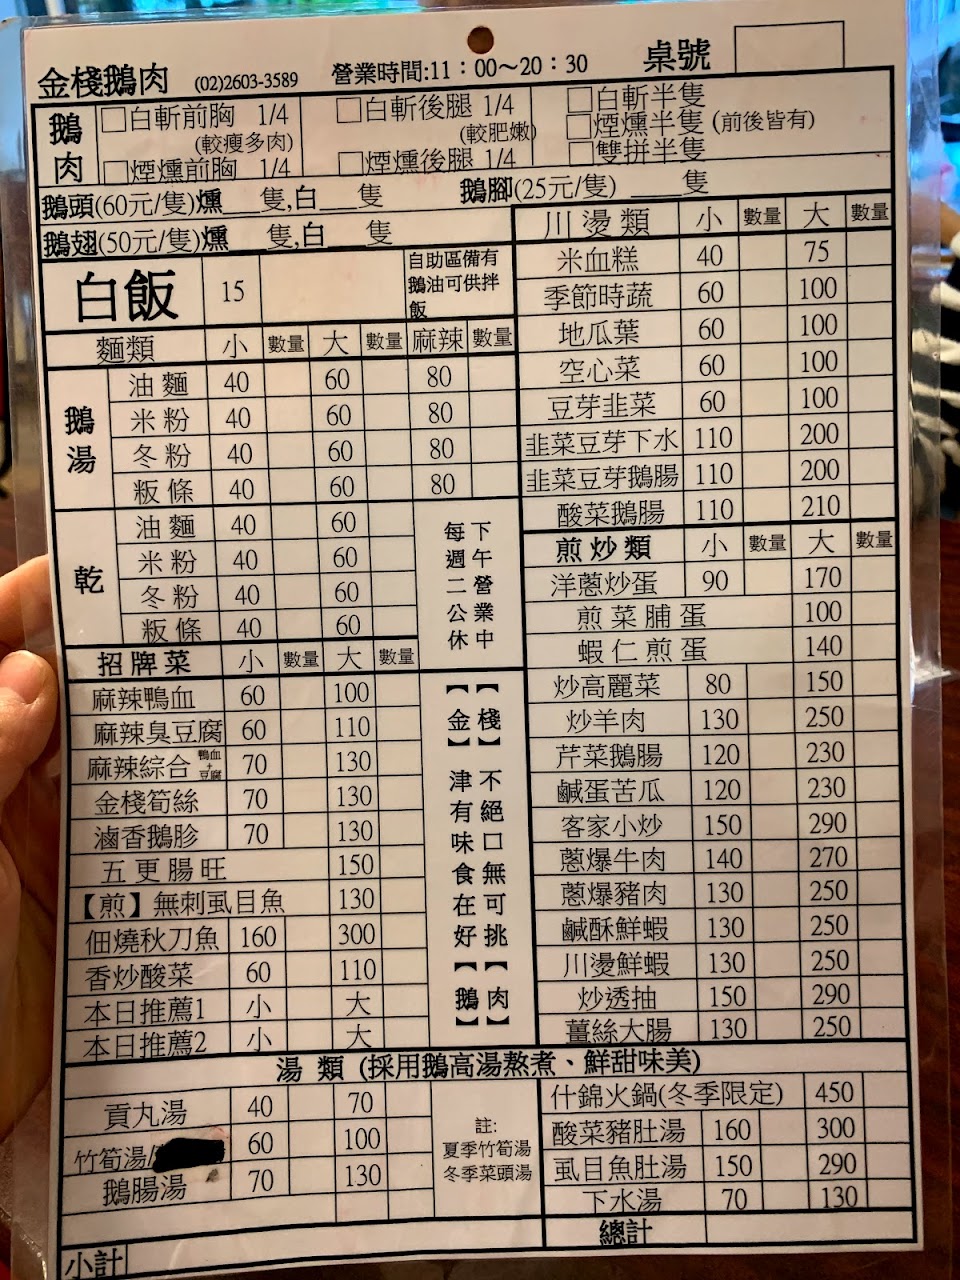 金棧鵝肉 (02)2603-3589 營業時間:11：00～20：30 桌號
鵝肉
□白斬前胸 1/4 □白斬後腿 1/4 □白斬半隻
(較瘦多肉) (較肥嫩) □煙燻半隻 (前後皆有)
□煙燻前胸 1/4 □煙燻後腿 1/4 □雙拼半隻
鵝頭(60元/隻)燻___隻,白___隻 鵝腳(25元/隻) ____隻
鵝翅(50元/隻)燻___隻,白___隻
白飯 15 自助區備有鵝油可供拌飯
麵類 小 數量 大 數量 麻辣 數量
鵝湯
油麵 40 60 80
米粉 40 60 80
冬粉 40 60 80
粄條 40 60 80
乾
油麵 40 60
米粉 40 60
冬粉 40 60
粄條 40 60
下午營業中
每週二公休
招牌菜 小 數量 大 數量
麻辣鴨血 60 100
麻辣臭豆腐 60 110
麻辣綜合 鴨血+豆腐 70 130
金棧筍絲 70 130
滷香鵝胗 70 130
五更腸旺 150
【煎】無刺虱目魚 130
佃燒秋刀魚 160 300
香炒酸菜 60 110
本日推薦1 小 大
本日推薦2 小 大
【棧】不絕口無可挑【肉】
【金】津有味食在好【鵝】
川燙類 小 數量 大 數量
米血糕 40 75
季節時蔬 60 100
地瓜葉 60 100
空心菜 60 100
豆芽韭菜 60 100
韭菜豆芽下水 110 200
韭菜豆芽鵝腸 110 200
酸菜鵝腸 110 210
煎炒類 小 數量 大 數量
洋蔥炒蛋 90 170
煎菜脯蛋 100
蝦仁煎蛋 140
炒高麗菜 80 150
炒羊肉 130 250
芹菜鵝腸 120 230
鹹蛋苦瓜 120 230
客家小炒 150 290
蔥爆牛肉 140 270
蔥爆豬肉 130 250
鹹酥鮮蝦 130 250
川燙鮮蝦 130 250
炒透抽 150 290
薑絲大腸 130 250
湯類 (採用鵝高湯熬煮、鮮甜味美)
貢丸湯 40 70
竹筍湯/ 60 100
鵝腸湯 70 130
註:
夏季竹筍湯
冬季菜頭湯
什錦火鍋(冬季限定) 450
酸菜豬肚湯 160 300
虱目魚肚湯 150 290
下水湯 70 130
小計 總計